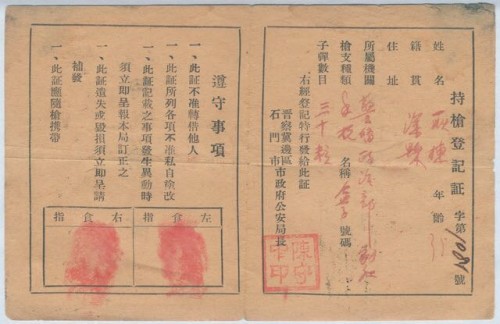 持槍登記証 字第 號
姓名 年齡
籍貫 深縣
住址
所屬機關
槍支種類 名稱 盒子 號碼
子彈數目 三十粒
右經登記特行發給此証
晋察冀邊區
石門市
市政府公安局長
陳守中印
遵守事項
一、此証不准轉借他人
一、此証所列各項不准私自塗改
一、此証記載之事項發生異動時
須立即呈報本局訂正之
一、此証遺失或毀損須立即呈請
補發
一、此証應隨槍携帶
左食指
右食指